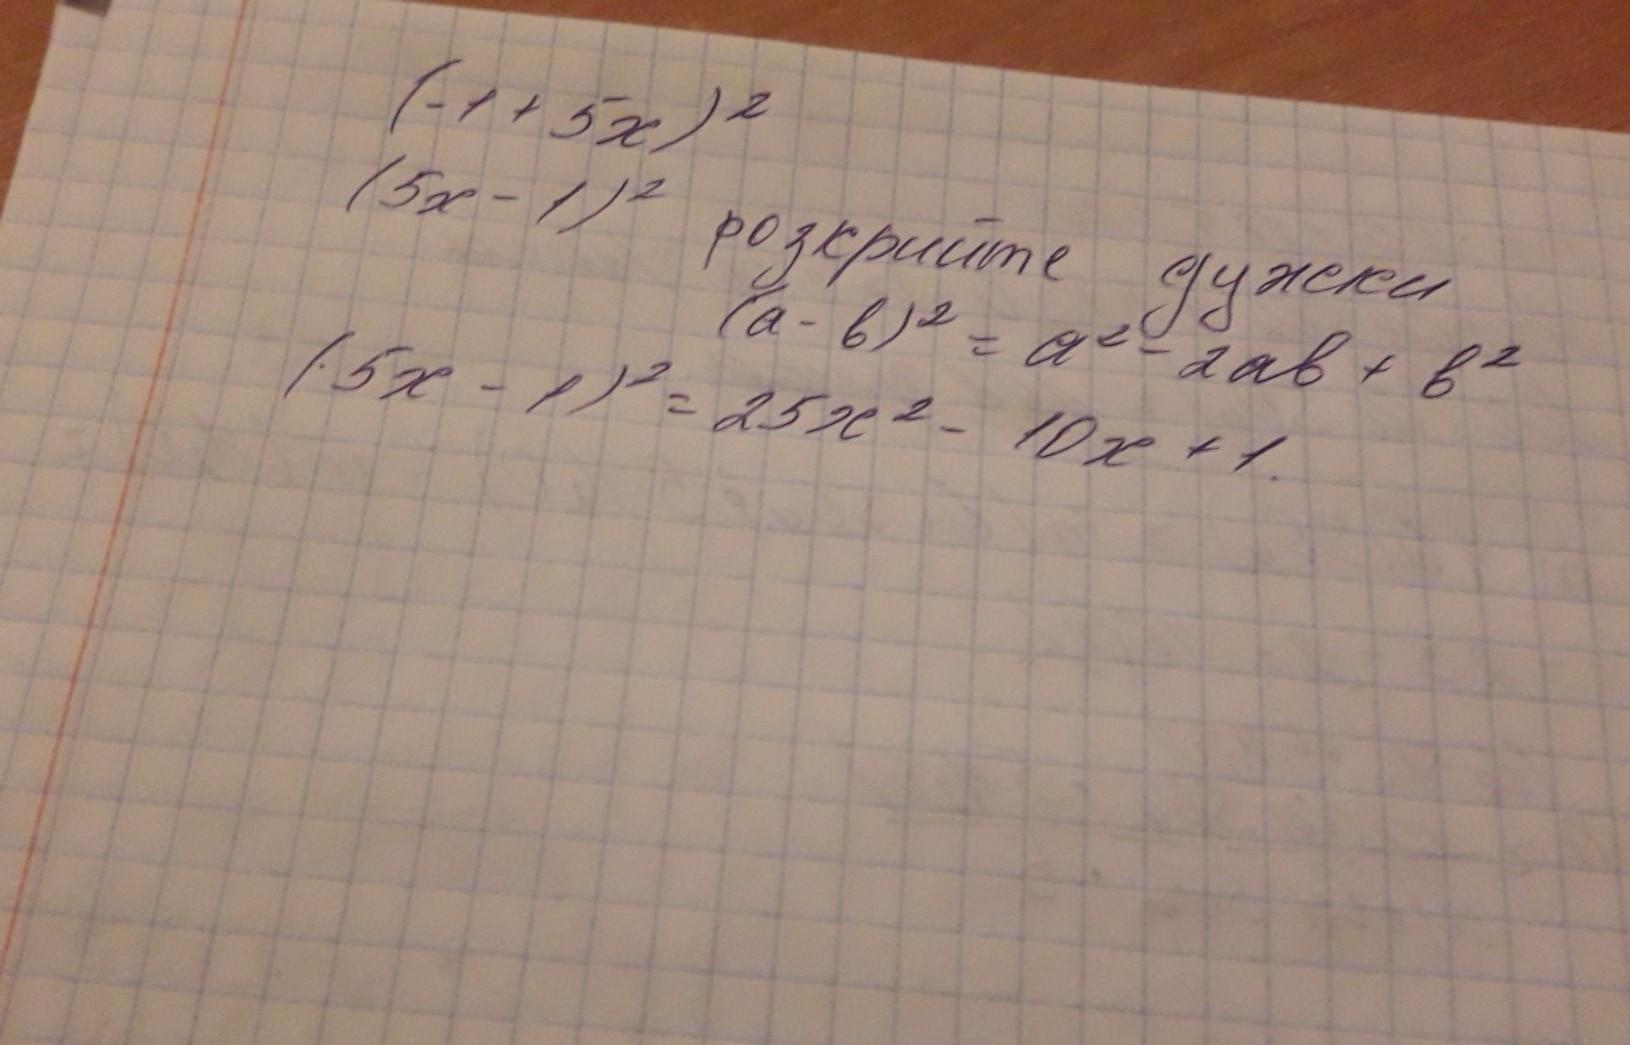 (-1 + 5x)²
(5x - 1)² розкрийте дужки
(a - b)² = a² - 2ab + b²
(5x - 1)² = 25x² - 10x + 1.